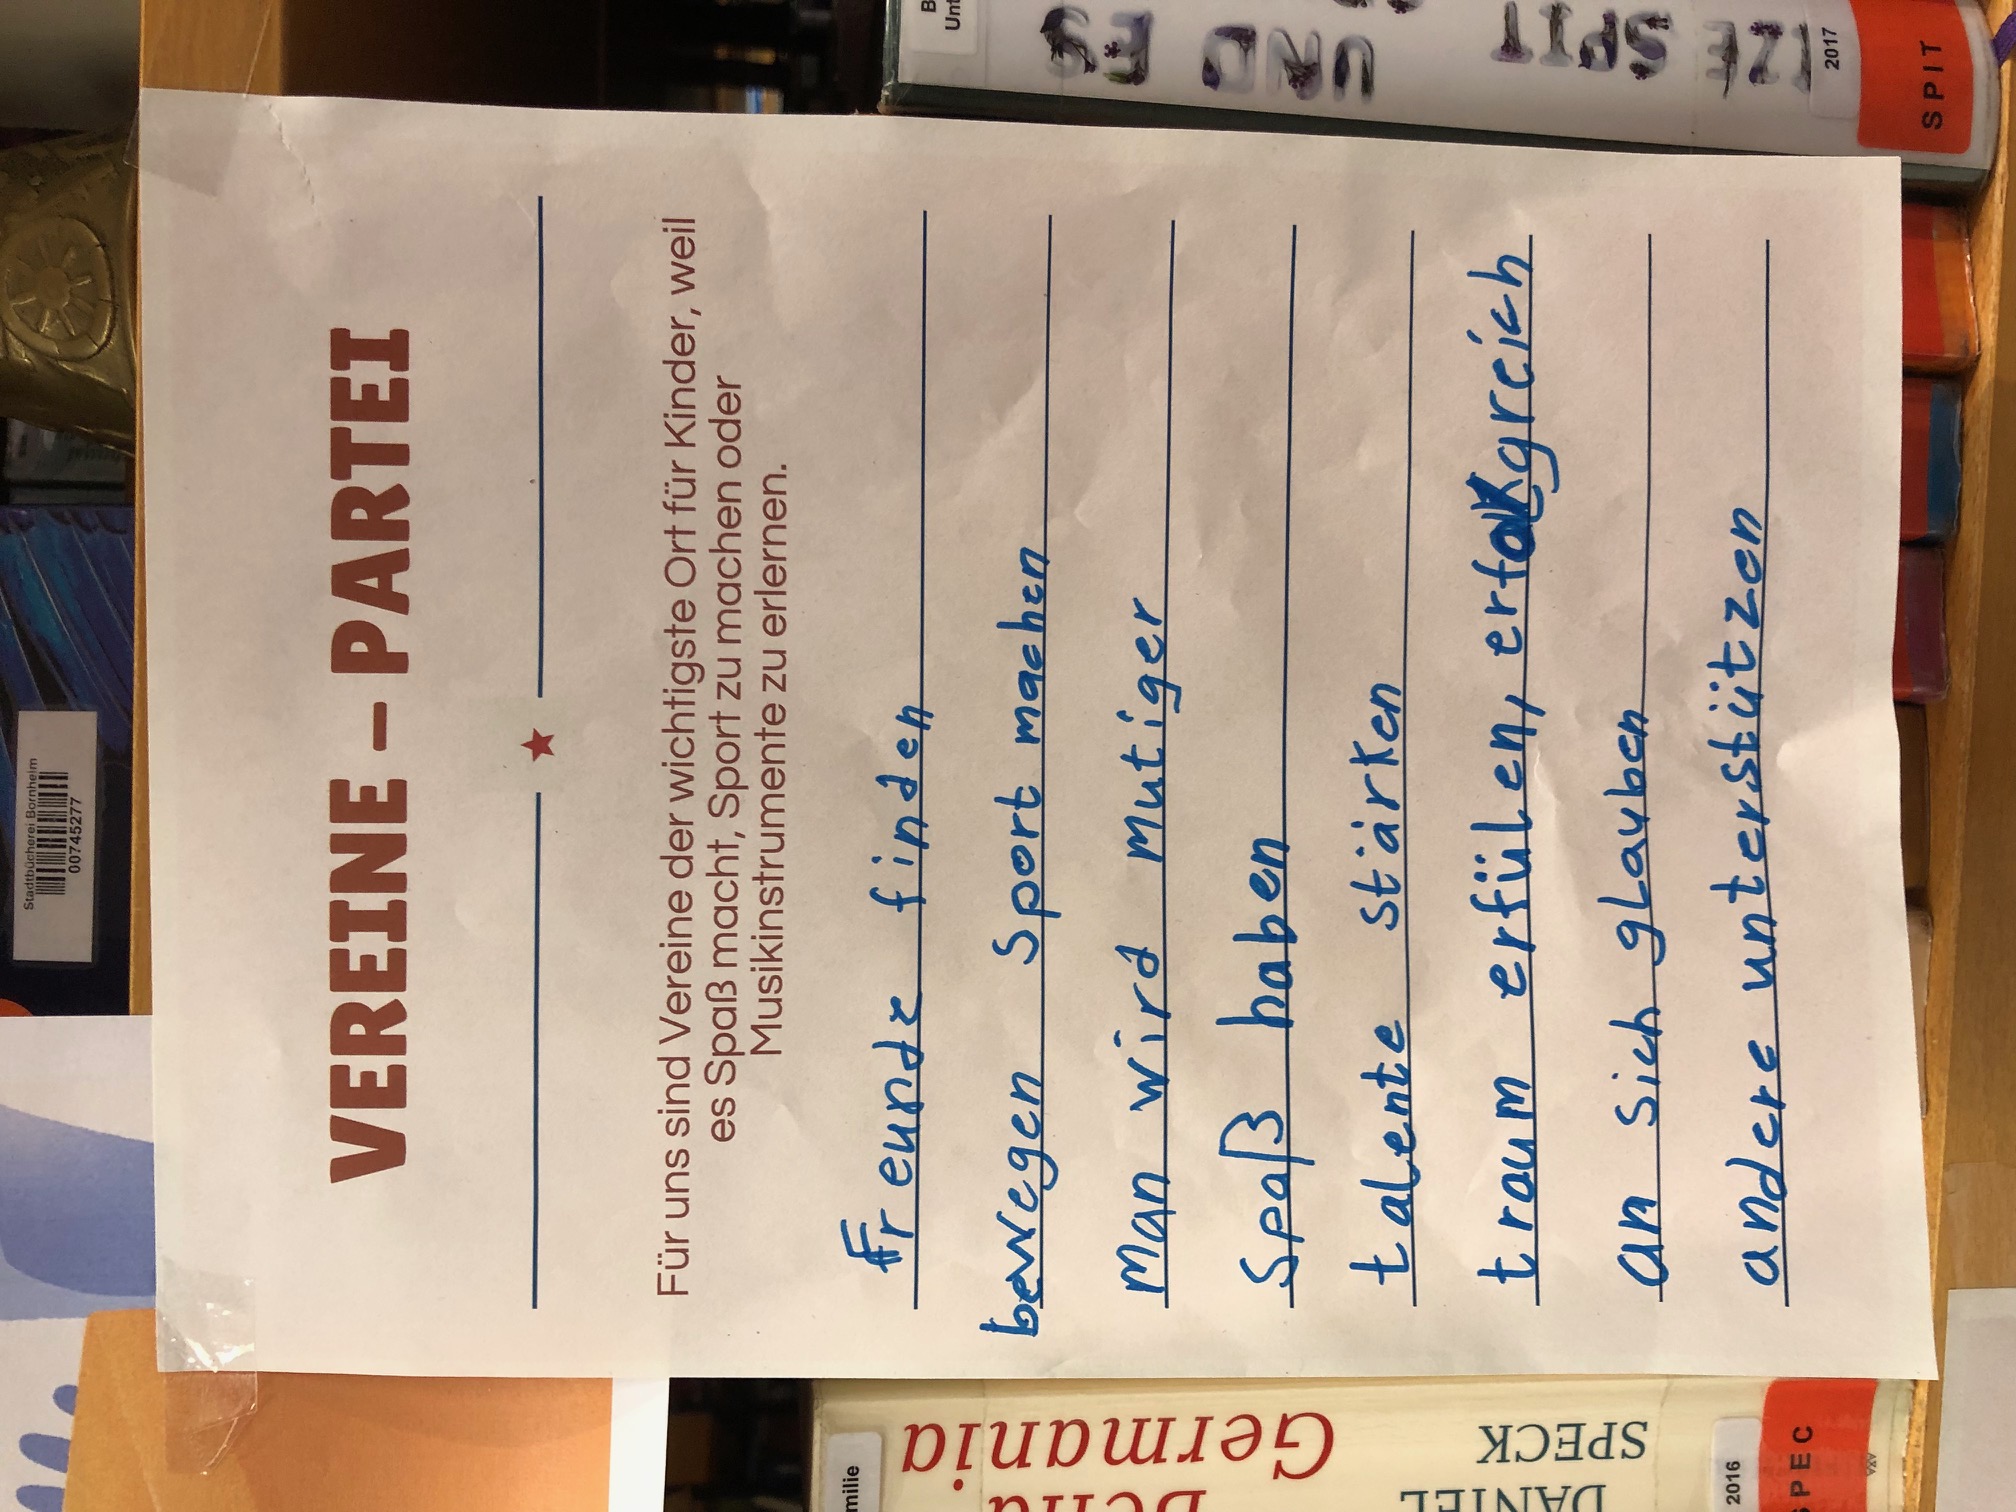 VEREINE – PARTEI
Für uns sind Vereine der wichtigste Ort für Kinder, weil
es Spaß macht, Sport zu machen oder
Musikinstrumente zu erlernen.
Freunde finden
bewegen Sport machen
man wird mutiger
Spaß haben
talente stärken
traum erfülen,
an sich glauben
andere unterstützen
Stadtbücherei Bornheim
00745277
UND ES
SPIT
2017
SPIT
milie
Germania
DANIEL
SPECK
2016
SPEC